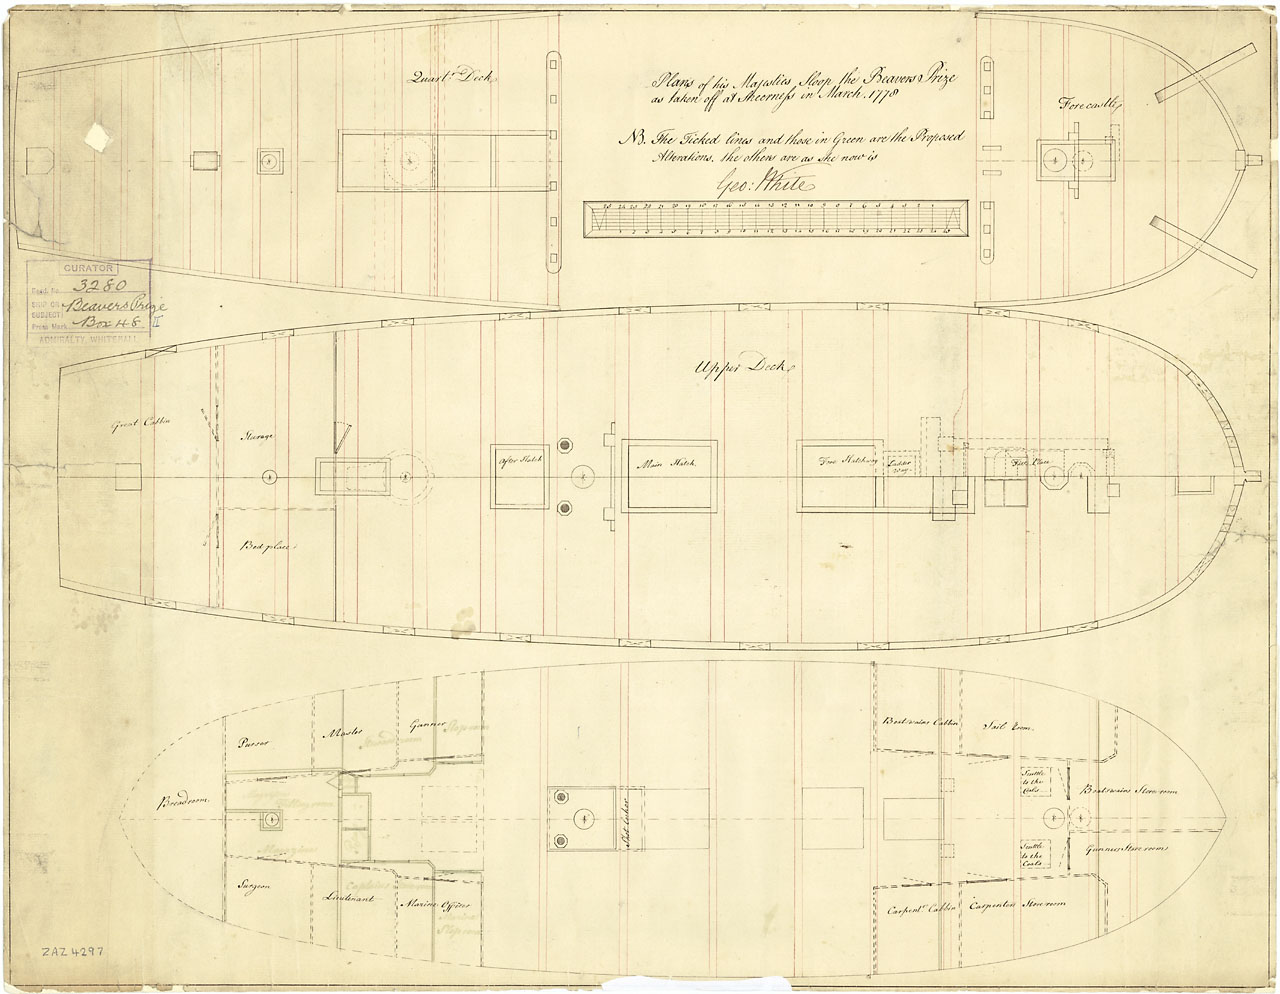 Quartr. Deck
Plans of his Majesties Sloop the Beavers Prize
as taken off at Sheerness in March. 1778
Forecastle
NB. The Ticked lines and those in Green are the Proposed
Alterations, the others are as she now is
Geo: White
CURATOR
Read. No. 3280
SHIP OR
SUBJECT: Beavers Prize
Press Mark Box 48 II
ADMIRALTY WHITEHALL
Upper Deck
Great Cabbin
Storage
Bed place
After Hatch
Main Hatch
Fore Hatchway
Ladder
Way
Fire Place
Purser
Master
Gunner
Breadroom
Surgeon
Lieutenant
Marine Officer
Captains
Shot locker
Boatswains Cabbin
Sail Room
Scuttle
to the
Coals
Boatswains Storeroom
Scuttle
to the
Coals
Gunners Storerooms
Carpentrs. Cabbin
Carpenters Storeroom
ZAZ 4297